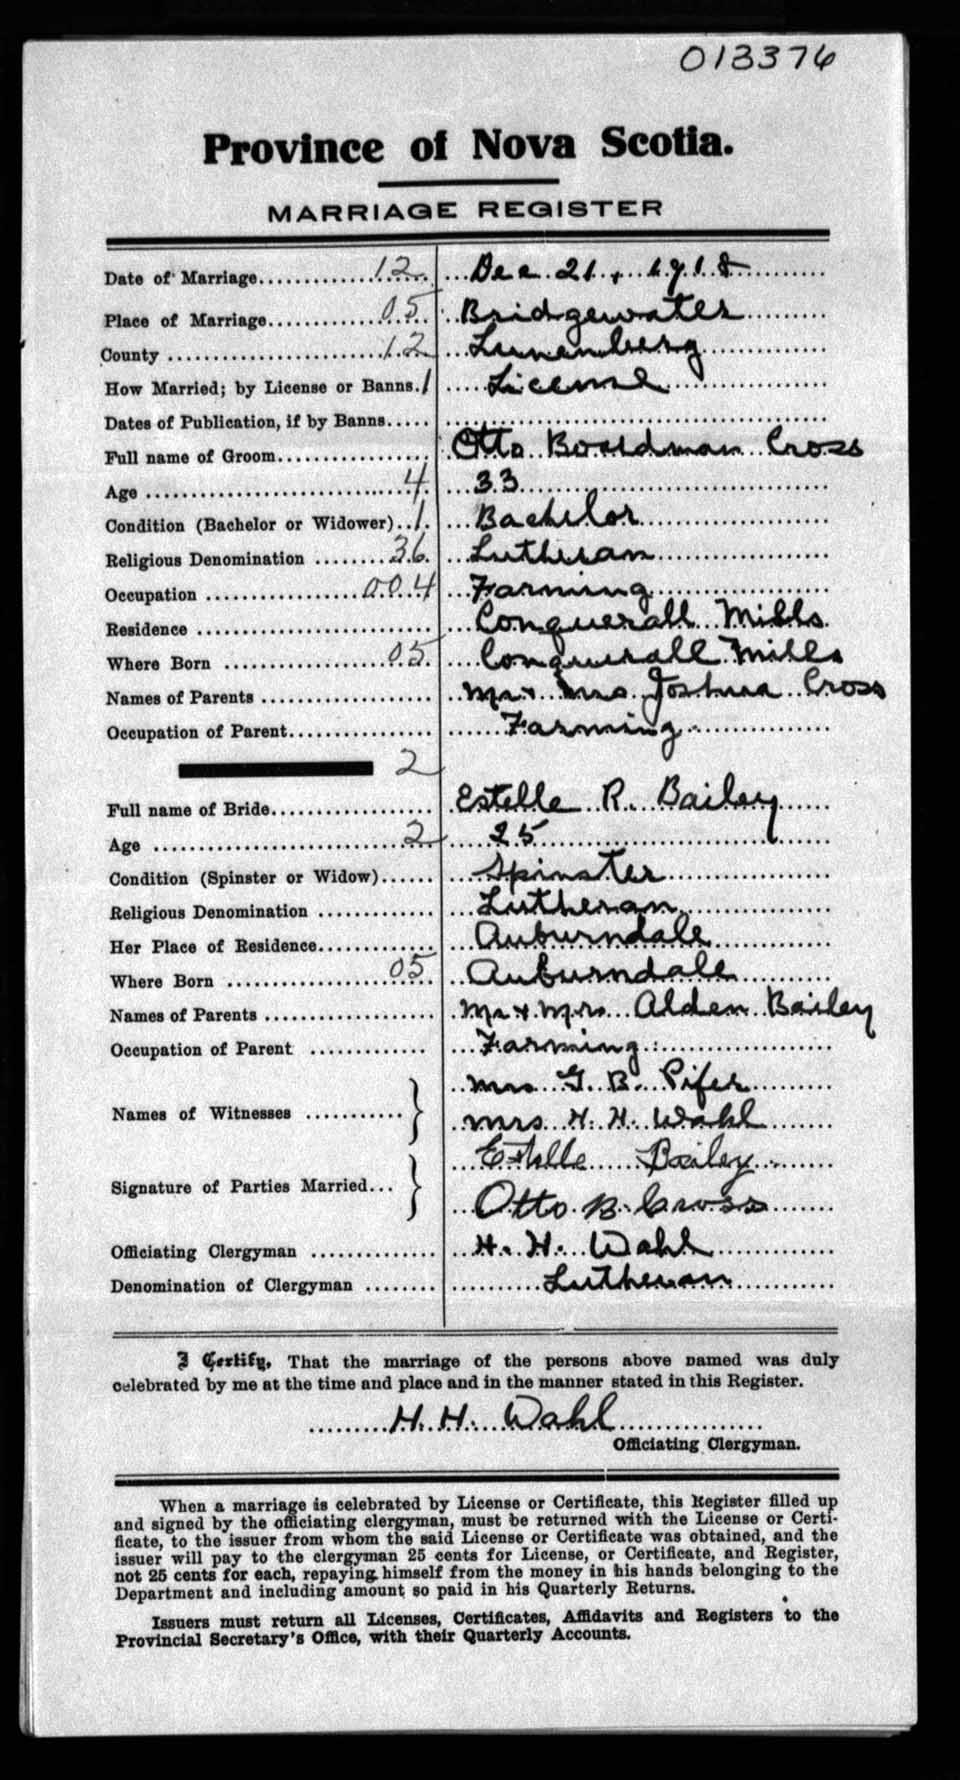 013376
Province of Nova Scotia.
MARRIAGE REGISTER
Date of Marriage 12 Dec 21, 1918
Place of Marriage 05 Bridgewater
County 12 Lunenberg
How Married; by License or Banns. 1 License
Dates of Publication, if by Banns
Full name of Groom Otto Boardman Cross
Age 4 33
Condition (Bachelor or Widower) 1 Bachelor
Religious Denomination 36 Lutheran
Occupation 004 Farming
Residence Conquerall Mills
Where Born 05 Conquerall Mills
Names of Parents Mr + Mrs Joshua Cross
Occupation of Parent Farming
2
Full name of Bride Estelle R. Bailey
Age 2 25
Condition (Spinster or Widow) Spinster
Religious Denomination Lutheran
Her Place of Residence Auburndale
Where Born 05 Auburndale
Names of Parents Mr + Mrs Alden Bailey
Occupation of Parent Farming
Names of Witnesses } Mrs G. B. Pifer
Mrs H. H. Wahl
Signature of Parties Married } Estelle Bailey
Otto B. Cross
Officiating Clergyman H. H. Wahl
Denomination of Clergyman Lutheran
I Certify, That the marriage of the persons above named was duly
celebrated by me at the time and place and in the manner stated in this Register.
H. H. Wahl
Officiating Clergyman.
When a marriage is celebrated by License or Certificate, this Register filled up
and signed by the officiating clergyman, must be returned with the License or Certi-
ficate, to the issuer from whom the said License or Certificate was obtained, and the
issuer will pay to the clergyman 25 cents for License, or Certificate, and Register,
not 25 cents for each, repaying himself from the money in his hands belonging to the
Department and including amount so paid in his Quarterly Returns.
Issuers must return all Licenses, Certificates, Affidavits and Registers to the
Provincial Secretary's Office, with their Quarterly Accounts.